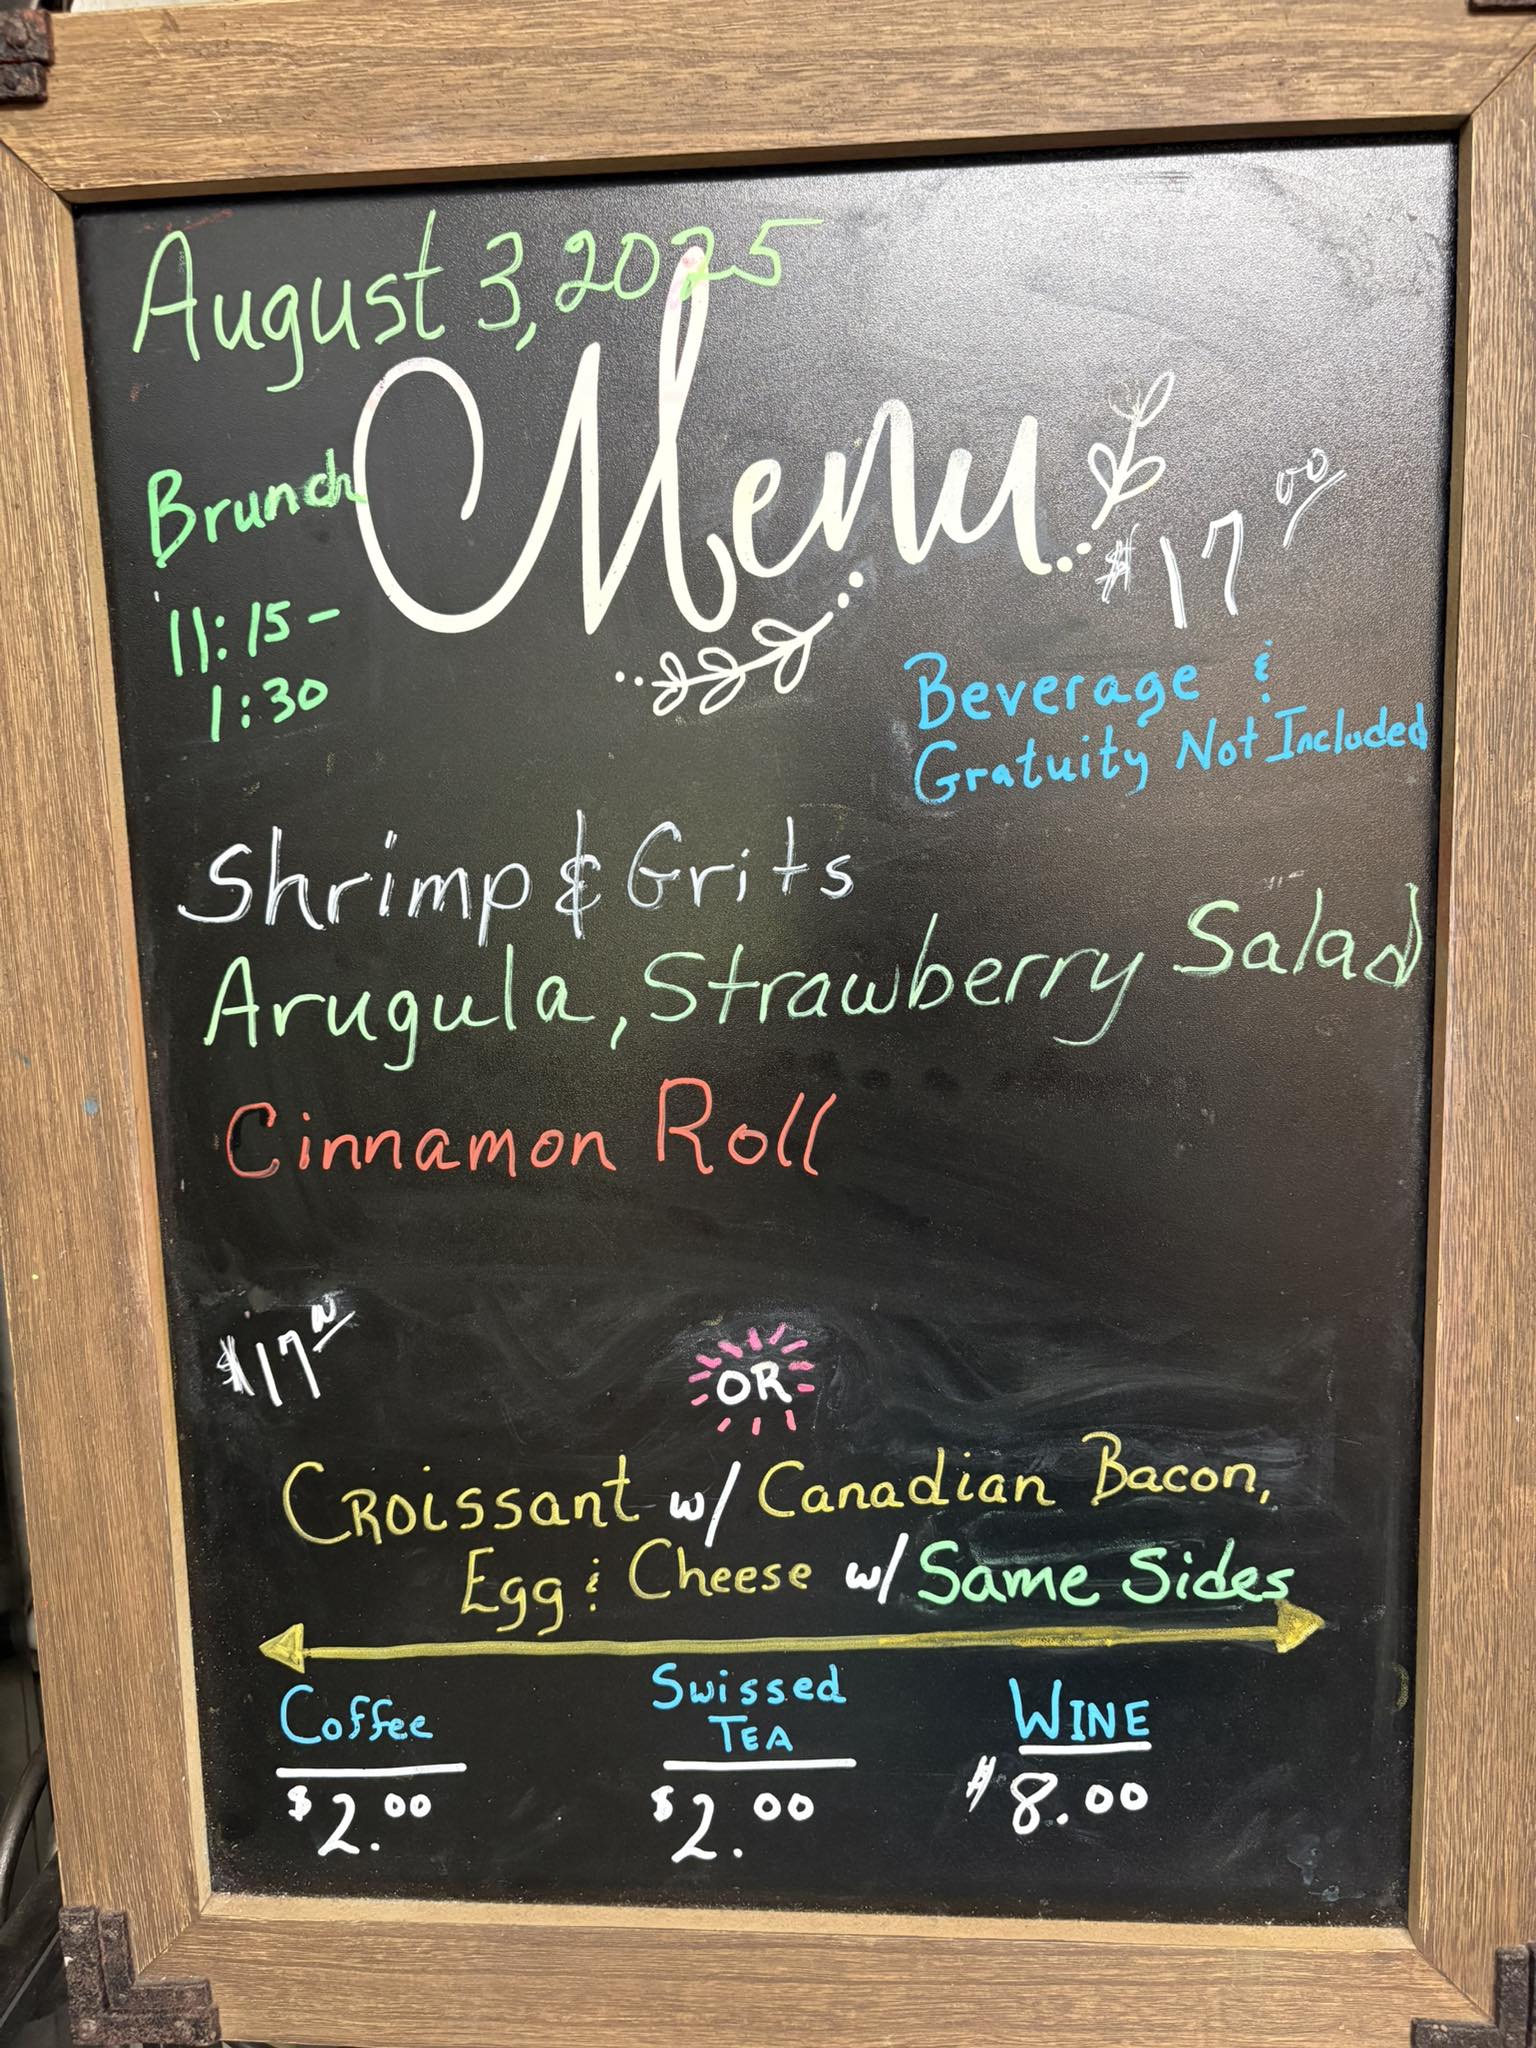 August 3, 2025
Menu
Brunch
11:15-
1:30
$17.00
Beverage &
Gratuity Not Included
Shrimp & Grits
Arugula, Strawberry Salad
Cinnamon Roll
$17.00
OR
Croissant w/ Canadian Bacon,
Egg & Cheese w/ Same Sides
Coffee
$2.00
Swissed
TEA
$2.00
WINE
$8.00